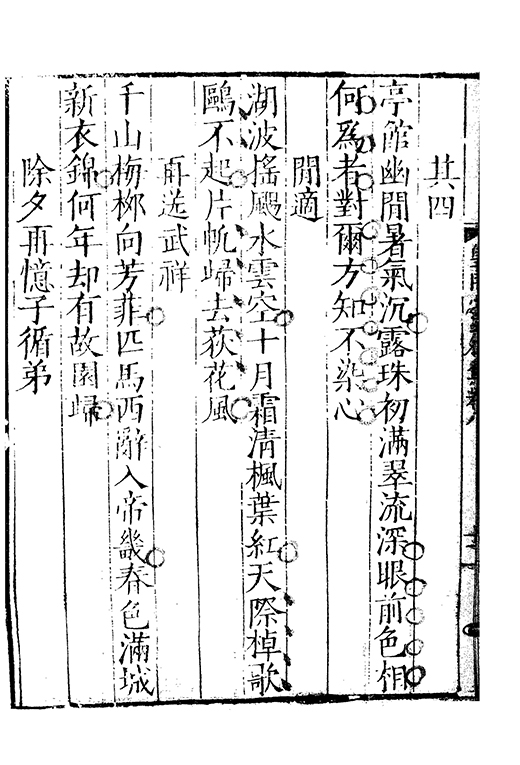 其四
亭館幽閒暑氣沉露珠初滿翠流深眼前色相
何爲者對爾方知不染心
閒適
湖波搖颺水雲空十月霜清楓葉紅天際棹歌
鷗不起片帆歸去荻花風
再送武祥
千山梅柳向芳菲匹馬西辭入帝畿春色滿城
新衣錦何年却有故園歸
除夕再憶子循弟